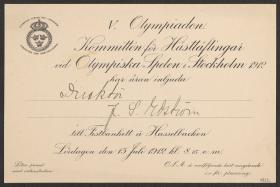 V. Olympiaden
Kommittén för Hästtäflingar
vid Olympiska Spelen i Stockholm 1912
har äran inbjuda
Direktör
J. S. Edström
till Festbankett å Hasselbacken
Lördagen den 13 Juli 1912 kl. 8 e.m.
O.S.A.